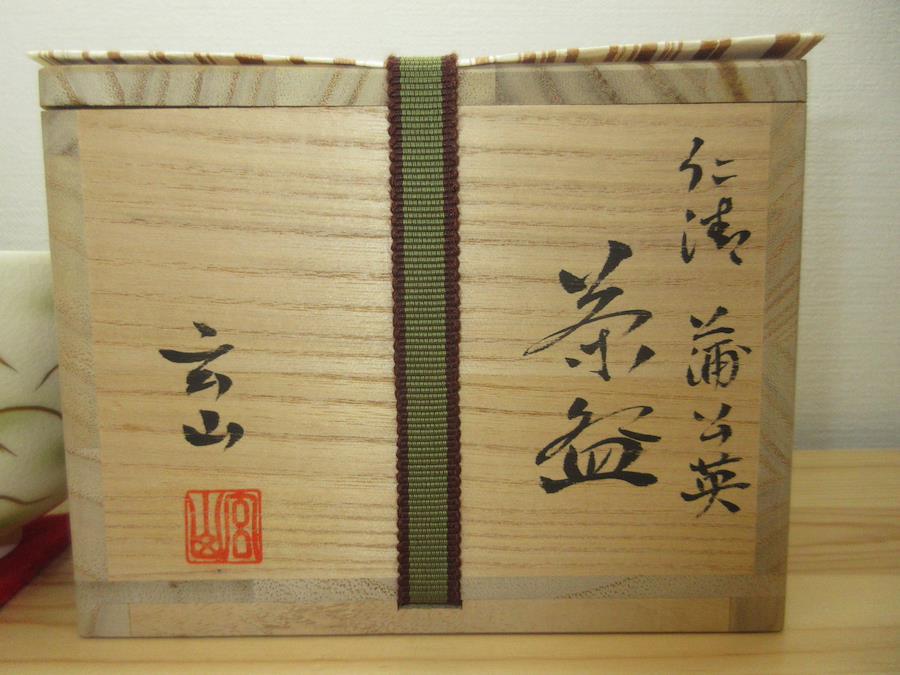 仁清 蒲公英
茶盌
玄山